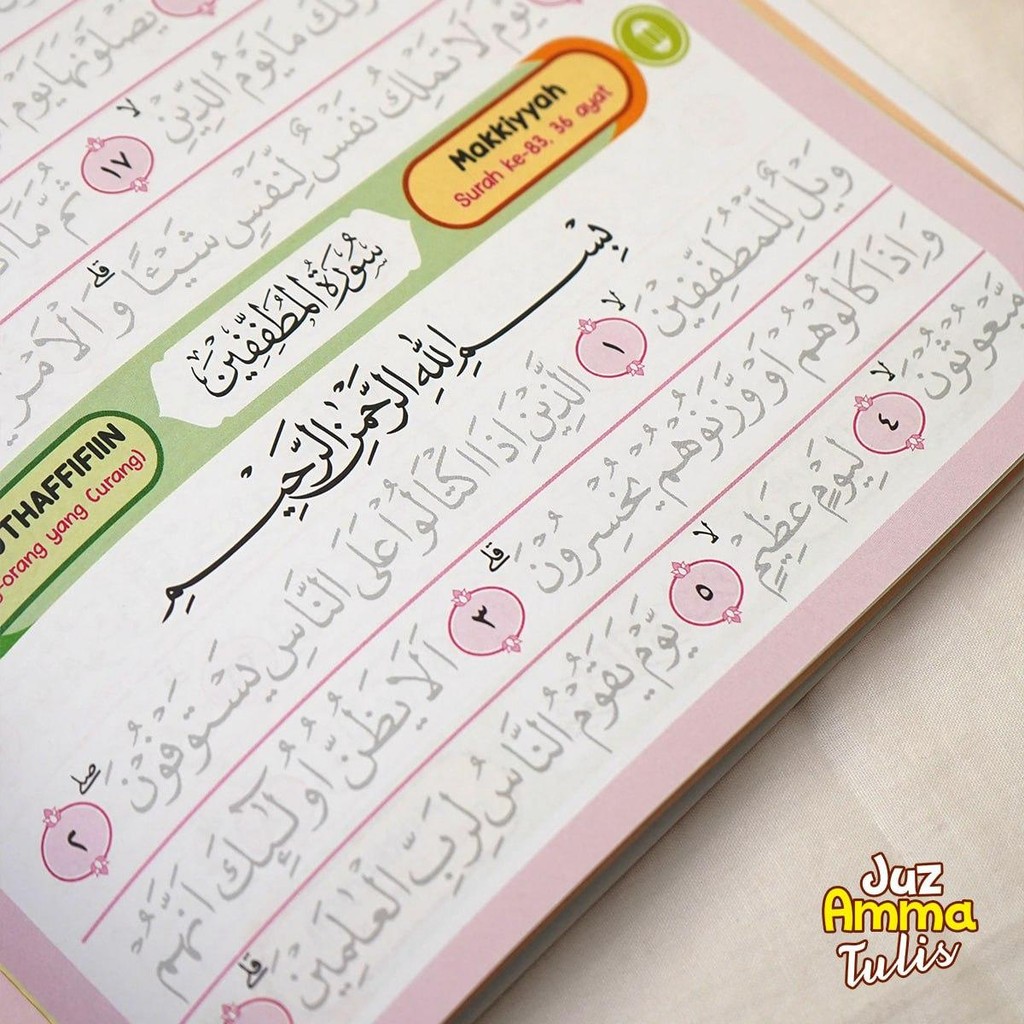 يَّصْلَوْنَهَا يَوْمَ
مَا يَوْمُ الدِّيْنِۙ ١٧ ثُمَّ مَآ
يَوْمَ لَا تَمْلِكُ نَفْسٌ لِّنَفْسٍ شَيْـًٔاۗ وَالْاَمْرُ
Makkiyyah
Surah ke-83, 36 ayat
سُوْرَةُ الْمُطَفِّفِيْنَ
THAFFIFIIN
-orang yang Curang)
بِسْمِ اللّٰهِ الرَّحْمٰنِ الرَّحِيْمِ
وَيْلٌ لِّلْمُطَفِّفِيْنَۙ ١ الَّذِيْنَ اِذَا اكْتَالُوْا عَلَى النَّاسِ يَسْتَوْفُوْنَۖ ٢
وَاِذَا كَالُوْهُمْ اَوْ وَّزَنُوْهُمْ يُخْسِرُوْنَۗ ٣ اَلَا يَظُنُّ اُولٰۤىِٕكَ اَنَّهُمْ
مَّبْعُوْثُوْنَۙ ٤ لِيَوْمٍ عَظِيْمٍۙ ٥ يَّوْمَ يَقُوْمُ النَّاسُ لِرَبِّ الْعٰلَمِيْنَۗ
Juz
Amma
Tulis